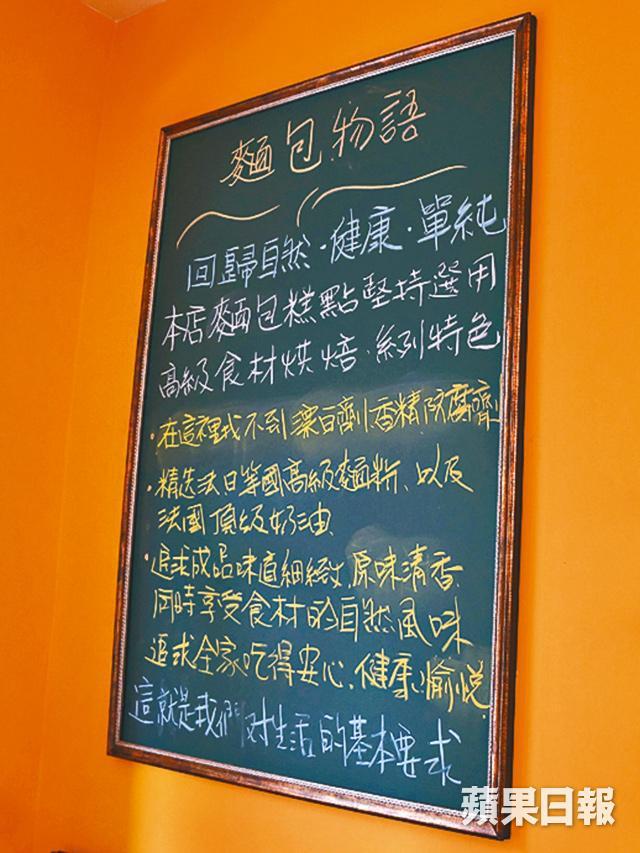 麵包物語
回歸自然·健康·單純
本店麵包糕點堅持選用
高級食材烘焙·系列特色
·在這裡找不到漂白劑香精防腐劑
·精选法日等國高級麵粉、以及
法國頂級奶油
·追求成品味道細緻、原味清香
同時享受食材的自然風味
追求全家吃得安心、健康愉悅
這就是我們对生活的基本要求
蘋果日報